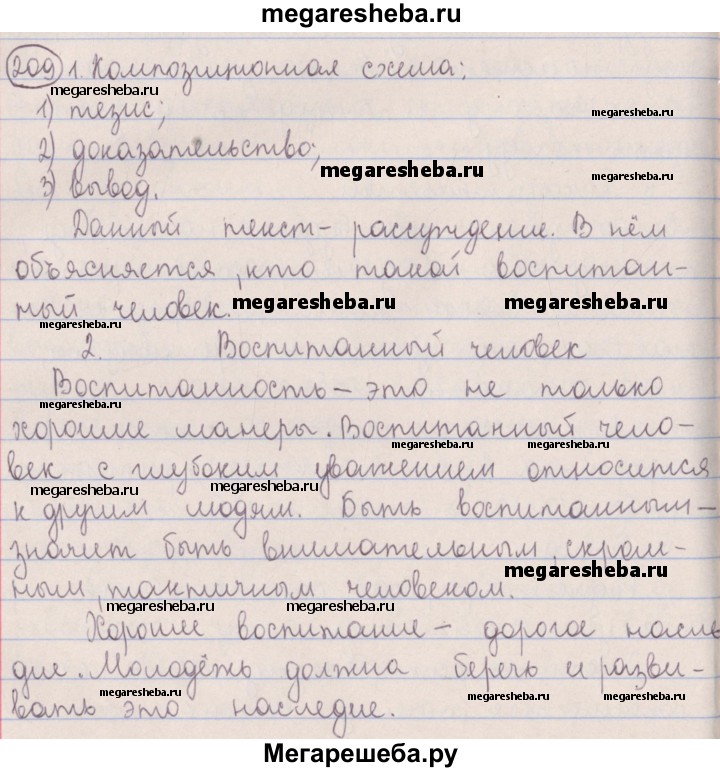 megaresheba.ru
209 1. Композиционная схема:
megaresheba.ru
1) тезис;
megaresheba.ru
2) доказательство;
megaresheba.ru
3) вывод.
Данный текст – рассуждение. В нём
объясняется, кто такой воспитан-
ный человек.
megaresheba.ru megaresheba.ru
megaresheba.ru
2. Воспитанный человек
Воспитанность – это не только
megaresheba.ru
хорошие манеры. Воспитанный чело-
megaresheba.ru megaresheba.ru
век с глубоким уважением относится
megaresheba.ru megaresheba.ru
к другим людям. Быть воспитанным –
значит быть внимательным, скром-
megaresheba.ru
ным, тактичным человеком.
megaresheba.ru megaresheba.ru
Хорошее воспитание – дорогое насле
дие. Молодёжь должна беречь и разви-
megaresheba.ru megaresheba.ru megaresheba.ru
вать это наследие.
Мегарешеба.ру